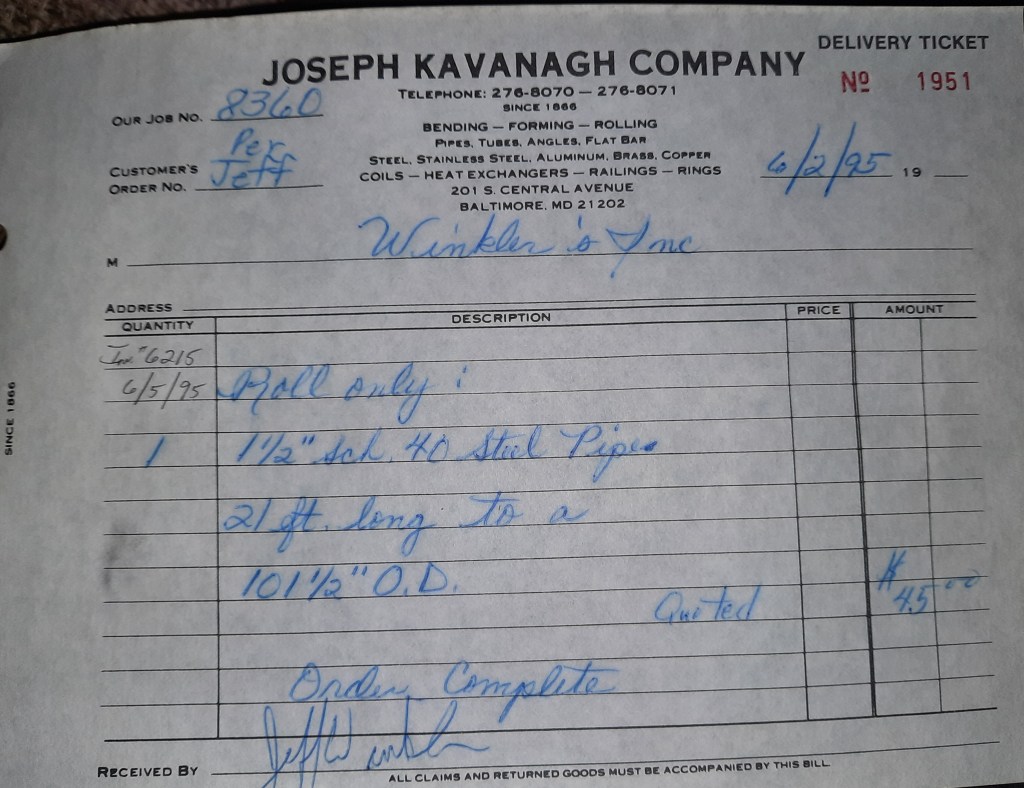 DELIVERY TICKET
JOSEPH KAVANAGH COMPANY
No 1951
TELEPHONE: 276-8070 — 276-8071
SINCE 1866
OUR JOB NO. 8360
BENDING — FORMING — ROLLING
PIPES, TUBES, ANGLES, FLAT BAR
STEEL, STAINLESS STEEL, ALUMINUM, BRASS, COPPER
COILS — HEAT EXCHANGERS — RAILINGS — RINGS
201 S. CENTRAL AVENUE
BALTIMORE, MD 21202
Per
CUSTOMER'S Jeff
ORDER NO.
6/2/95 19
M Winkler's Inc
ADDRESS
QUANTITY DESCRIPTION PRICE AMOUNT
Inv # 6215
6/5/95 Roll only :
1 1 1/2" sch. 40 Steel Pipe
21 ft. long to a
101 1/2" O.D.
Quoted $ 45 00
Order Complete
Jeff Winkler
RECEIVED BY
ALL CLAIMS AND RETURNED GOODS MUST BE ACCOMPANIED BY THIS BILL
SINCE 1866